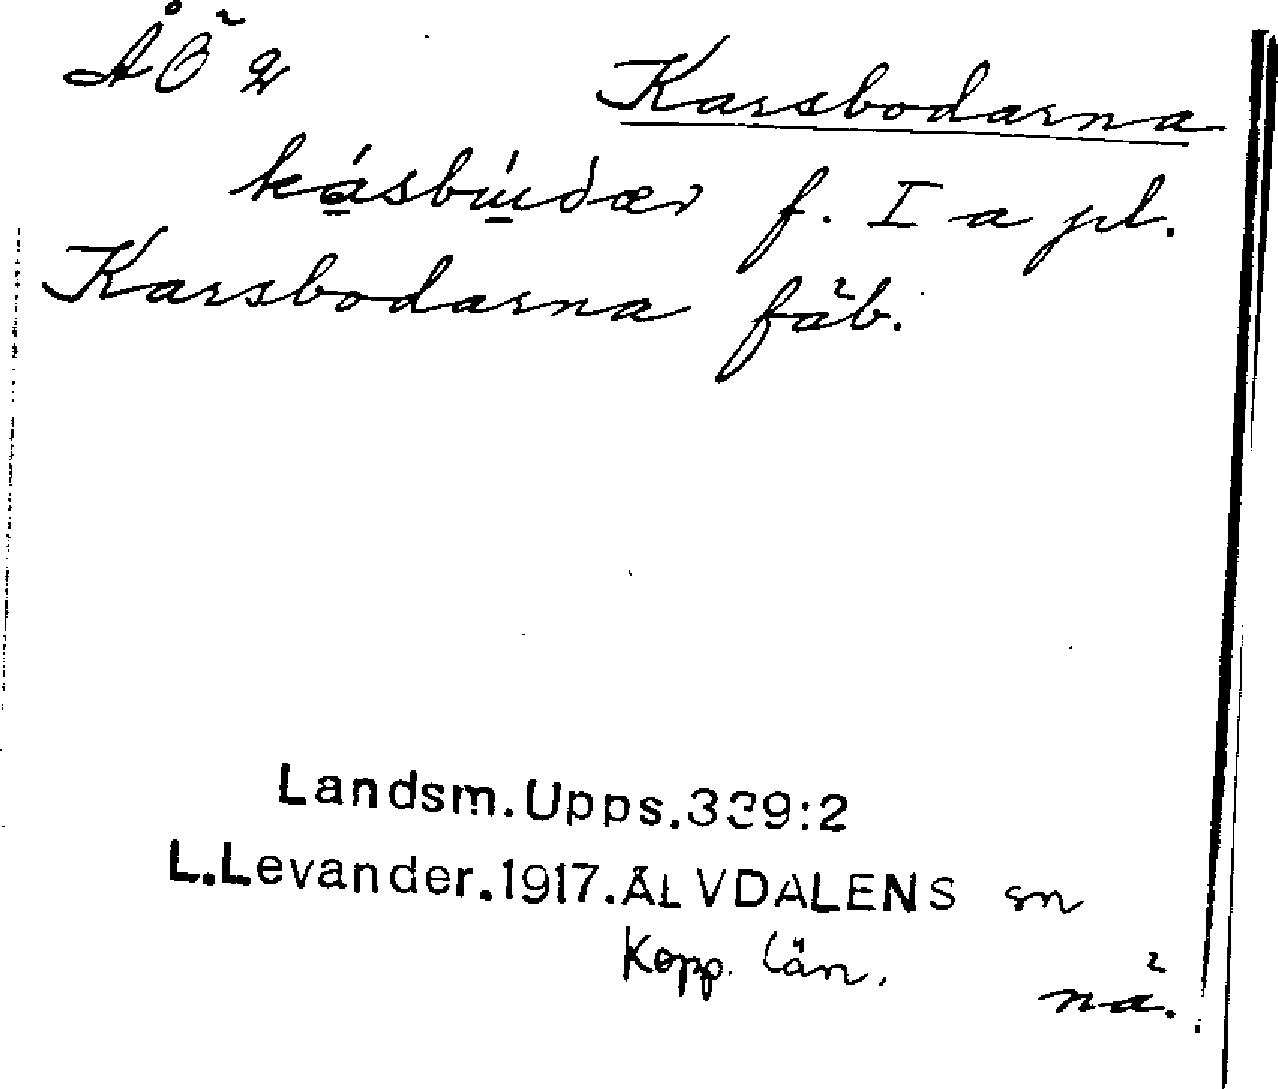 ÅÖ 2
Karsbodarna
kásbúdær f. I a pl.
Karsbodarna fäb.
Landsm.Upps.339:2
L.Levander.1917.ÄLVDALENS sn
Kopp. län.
nä.